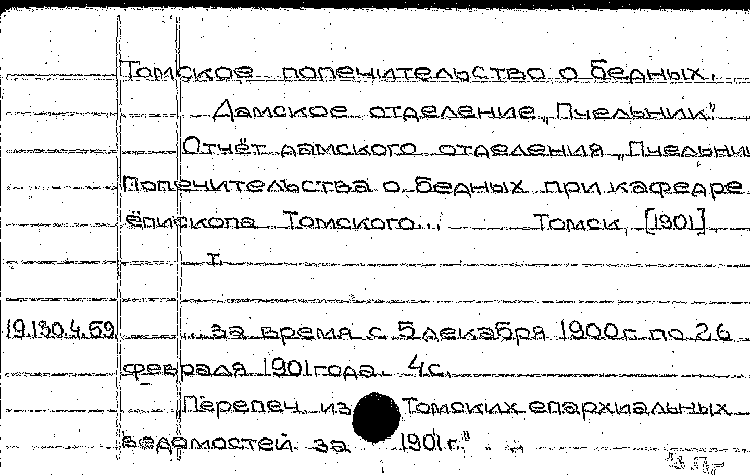 Томское попечительство о бедных.
Дамское отделение „Пчельник"
Отчёт дамского отделения „Пчельни
Попечительства о бедных при кафедре
епископа Томского... Томск, [1901]
т.
19.130.4.59 ...за время с 5 декабря 1900г. по 26
февраля 1901 года. 4 с.
Перепеч. из „Томских епархиальных
ведомостей за 1901 г."